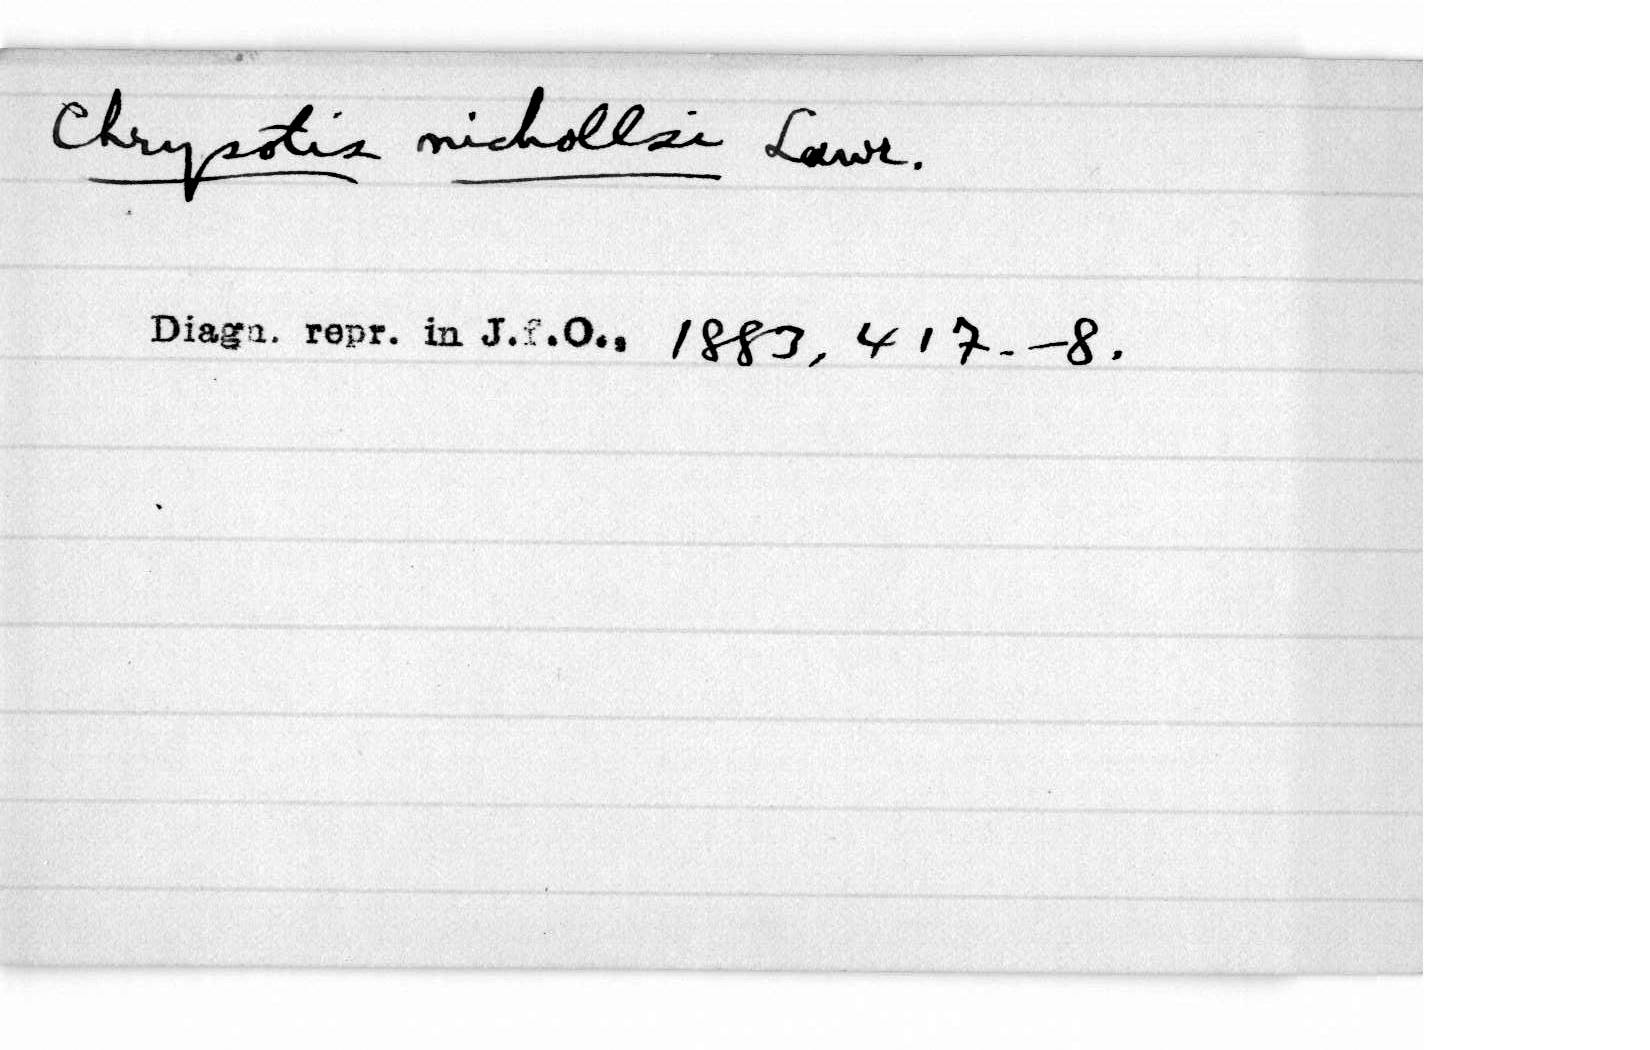 Chrysotis nichollsi Lawr.
Diagn. repr. in J.f.O., 1883, 417.-8.